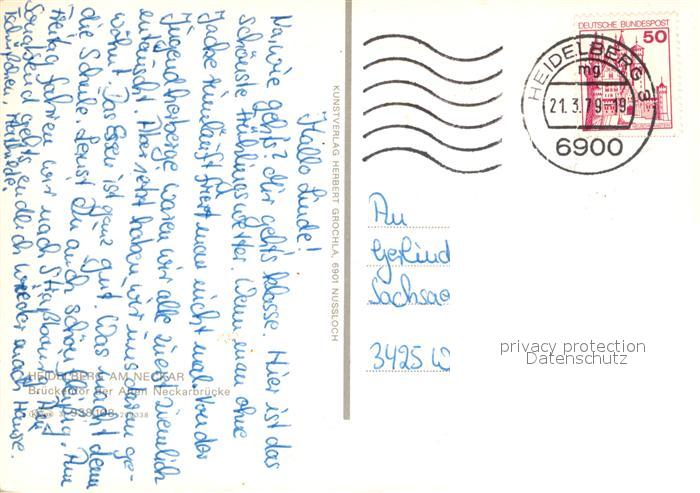 Hallo Linde!
Na, wie geht's? Mir geht's klasse. Hier ist das
schönste Frühlingswetter. Wenn man ohne
Jacke rumläuft friert man nicht mal. Von der
Jugendherberge waren wir alle zuerst ziemlich
enttäuscht. Aber jetzt haben wir uns daran ge-
wöhnt. Das Essen ist ganz gut. Was macht denn
die Schule. Lernst Du auch schön fleißig. Am
Freitag fahren wir nach Straßburg. Am
Sonnabend geht's endlich wieder nach Hause.
Tschüßchen,
KUNSTVERLAG HERBERT GROCHLA, 6901 NUSSLOCH
HEIDELBERG AM NECKAR
Brückentor der Alten Neckarbrücke
DEUTSCHE BUNDESPOST
50
HEIDELBERG
mg
21.3.79-19
6900
An
Gerlind
Sachse
3425 W
privacy protection
Datenschutz